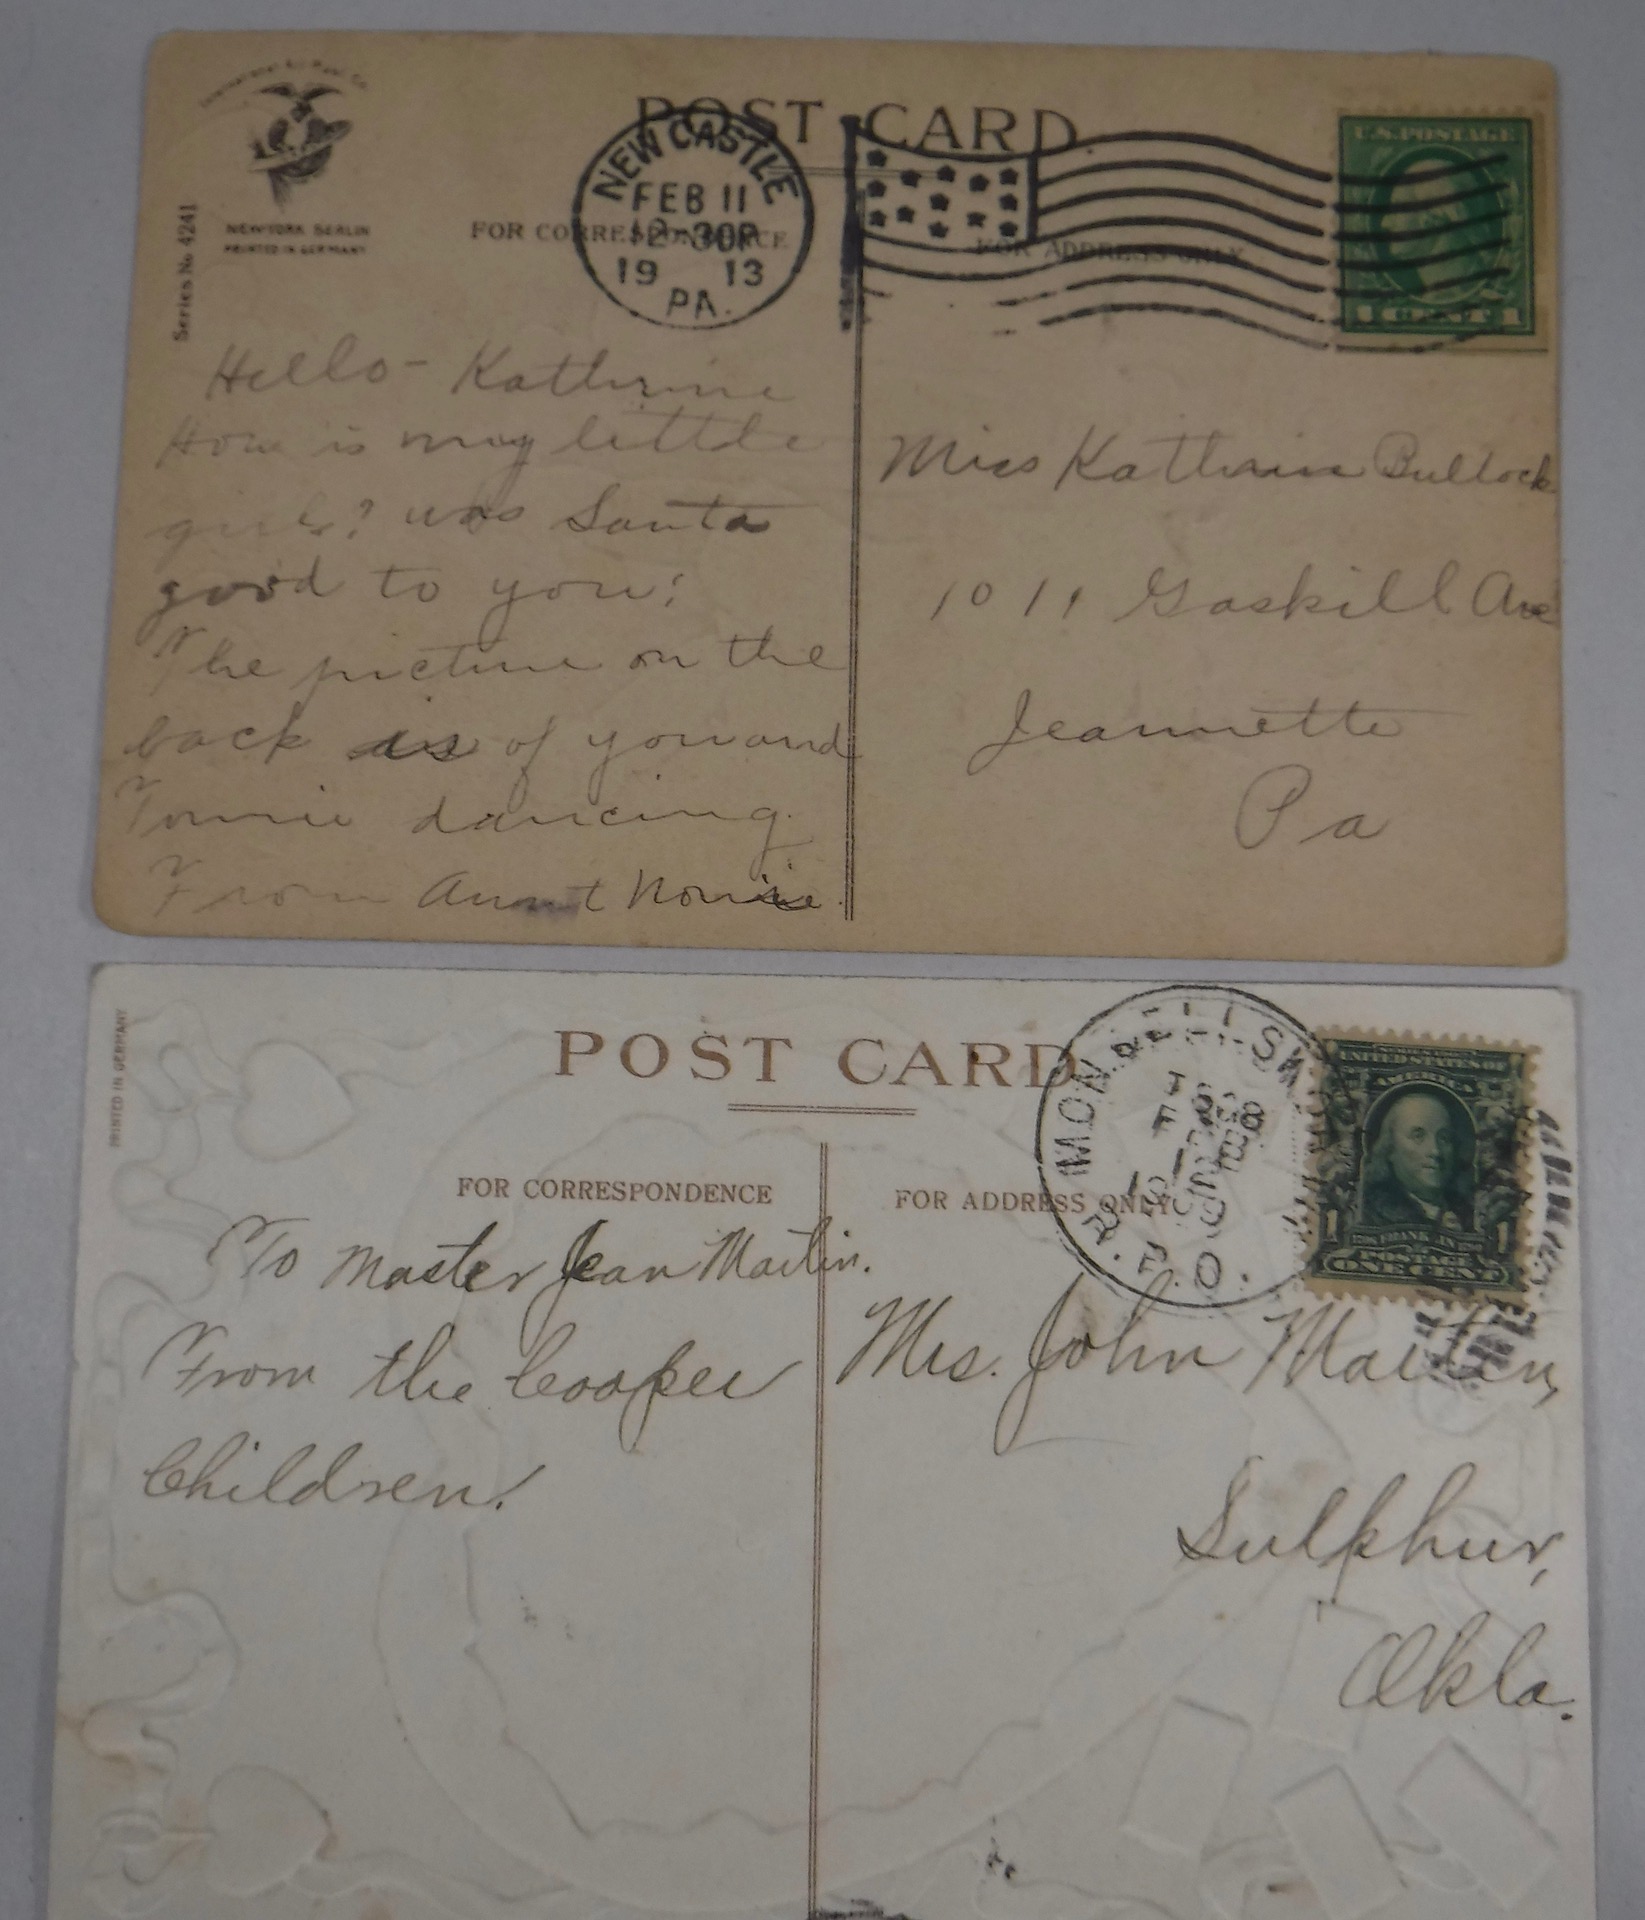 International Art Publ. Co.
NEW YORK BERLIN
PRINTED IN GERMANY
Series No 4241
POST CARD
NEW CASTLE
FEB 11
12-30P
19 13
PA.
U.S. POSTAGE
1 CENT 1
FOR CORRESPONDENCE
FOR ADDRESS ONLY
Hello - Kathrine
How is my little
girl? was Santa
good to you?
The picture on the
back is of you and
Tonnie dancing.
From Aunt Nonie.
Miss Kathrine Bullock
1011 Gaskill Ave
Jeannette
Pa
PRINTED IN GERMANY
POST CARD
UNITED STATES OF
AMERICA
1 FRANKLIN 1
POSTAGE
ONE CENT
FOR CORRESPONDENCE
FOR ADDRESS ONLY
To Master Jean Martin.
From the Cooper
Children.
Mrs. John Martin,
Sulphur,
Okla.